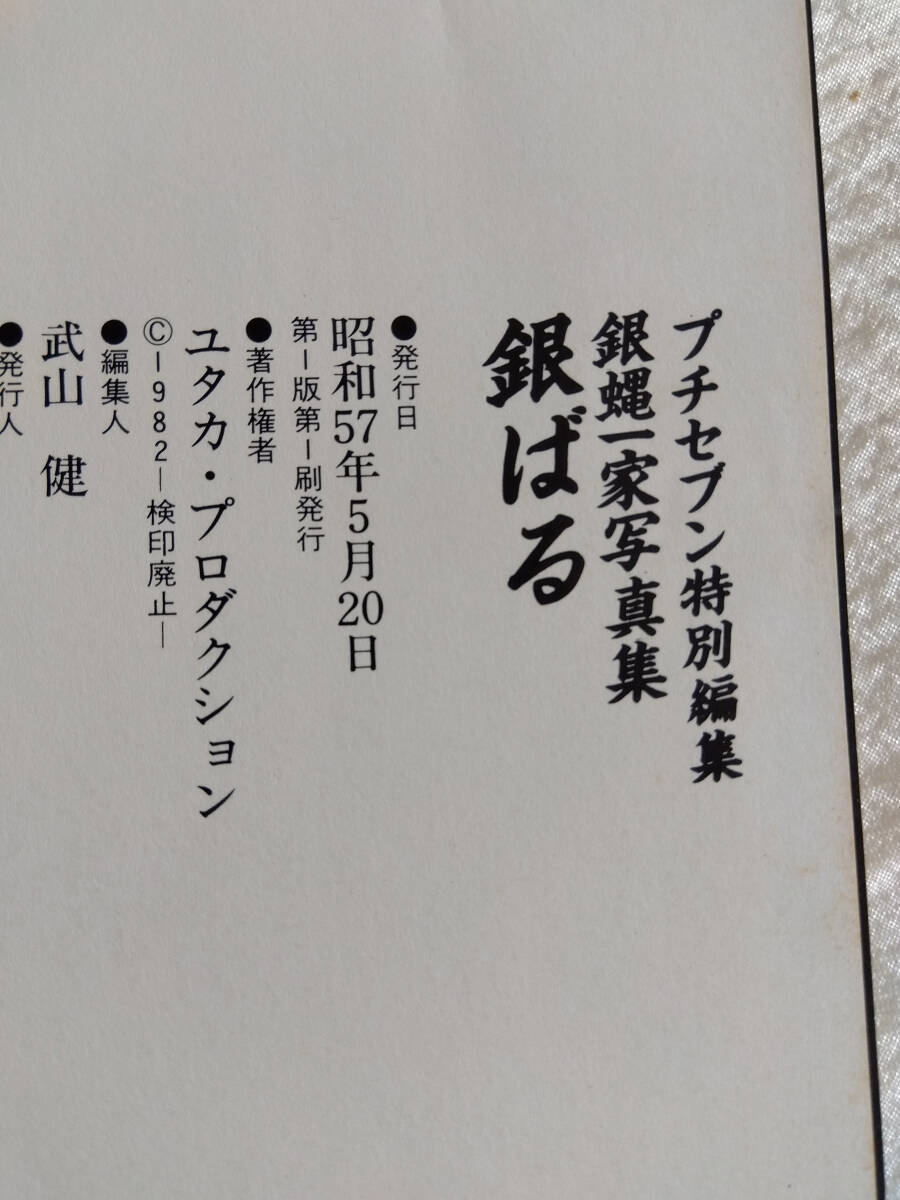 プチセブン特別編集
銀蝿一家写真集
銀ばる
●発行日
昭和57年5月20日
第1版第1刷発行
●著作権者
ユタカ・プロダクション
©1982―検印廃止―
●編集人
武山 健
●発行人